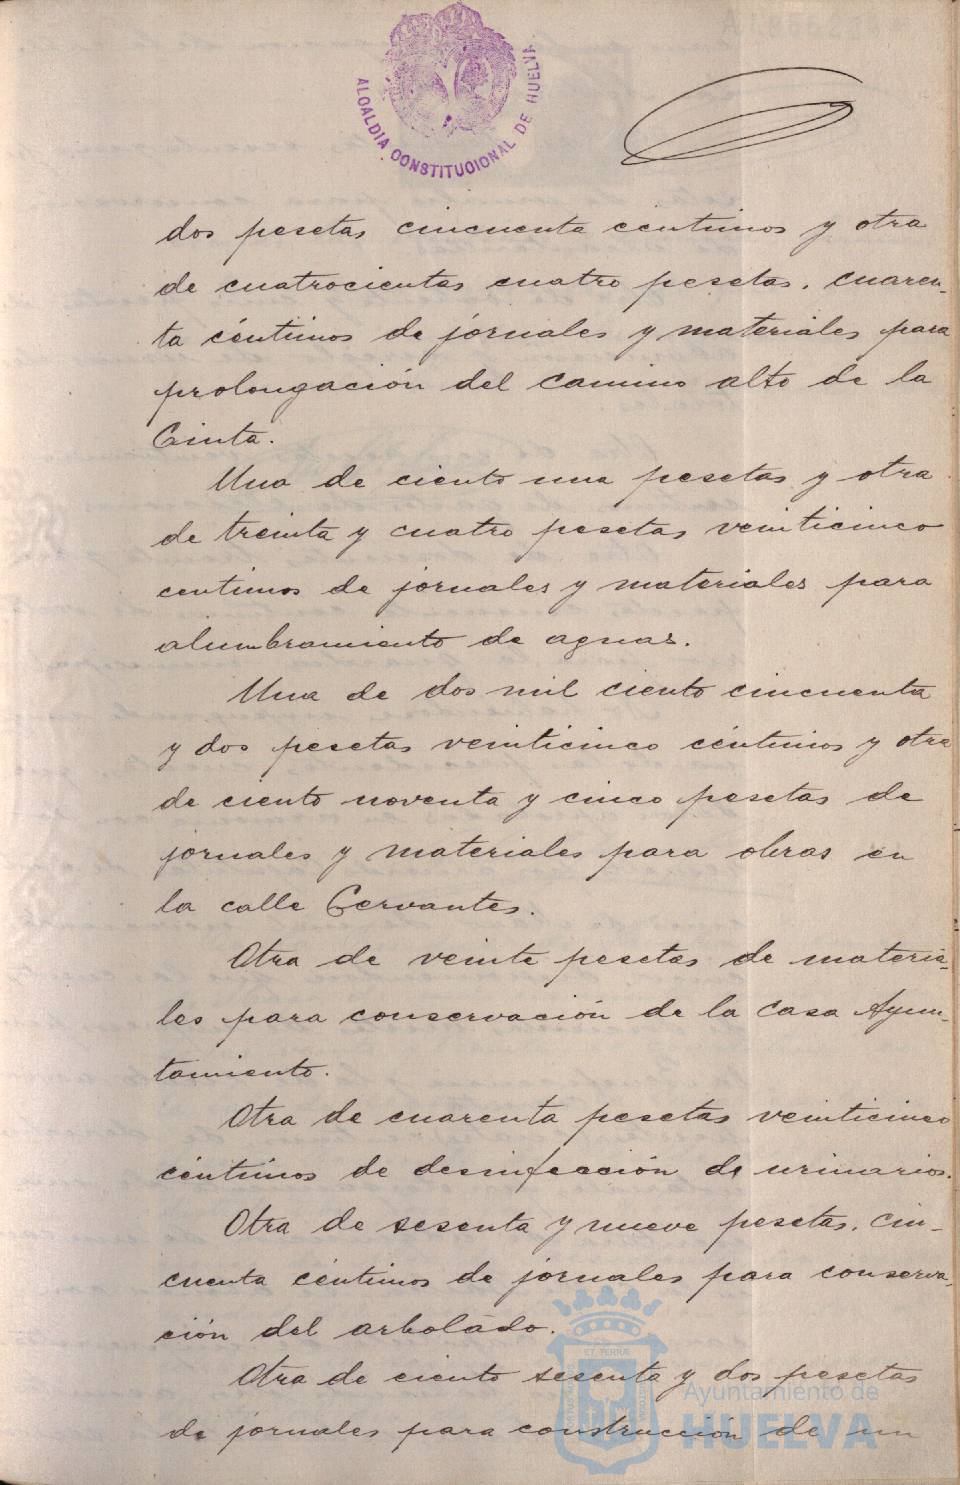 ALCALDIA CONSTITUCIONAL DE HUELVA
dos pesetas cincuenta centimos y otra
de cuatrocientas cuatro pesetas, cuaren-
ta céntimos de jornales y materiales para
prolongación del camino alto de la
Cinta.
Una de ciento una pesetas y otra
de treinta y cuatro pesetas veinticinco
centimos de jornales y materiales para
alumbramiento de aguas.
Una de dos mil ciento cincuenta
y dos pesetas veinticinco céntimos y otra
de ciento noventa y cinco pesetas de
jornales y materiales para obras en
la calle Cervantes.
Otra de veinte pesetas de materia-
les para conservación de la Casa Ayun-
tamiento.
Otra de cuarenta pesetas veinticinco
céntimos de desinfección de urinarios.
Otra de sesenta y nueve pesetas, cin-
cuenta céntimos de jornales para conserva-
ción del arbolado.
Otra de ciento sesenta y dos pesetas
de jornales para construcción de un
Ayuntamiento de
HUELVA